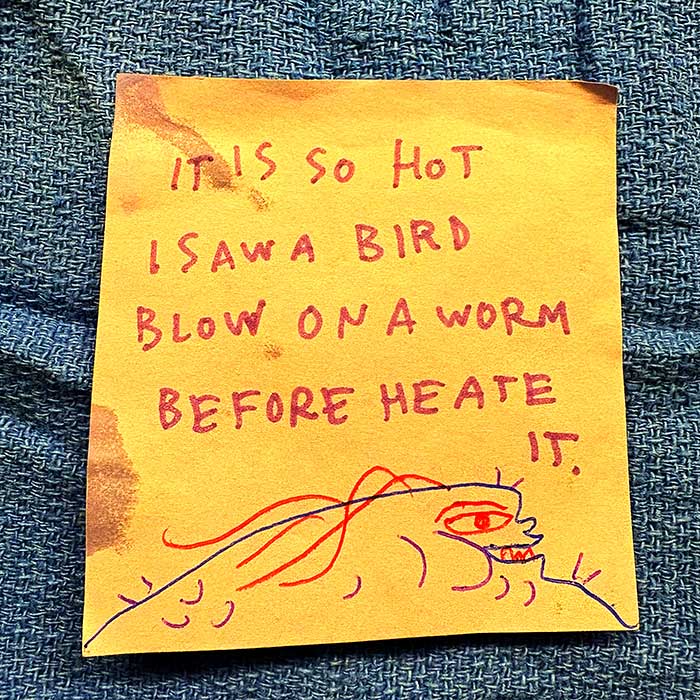 IT IS SO HOT
I SAW A BIRD
BLOW ON A WORM
BEFORE HE ATE
IT.